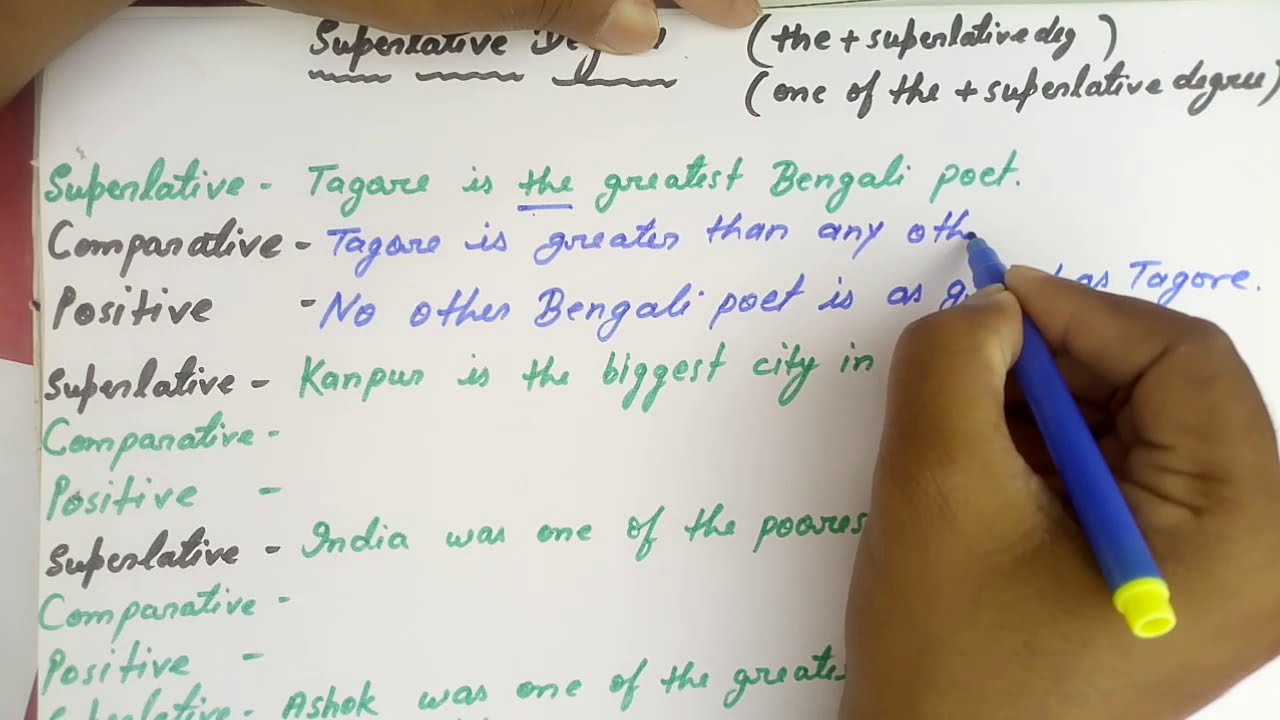 Superlative (the + superlative deg )
(one of the + superlative degree)
Superlative - Tagore is the greatest Bengali poet.
Comparative - Tagore is greater than any oth
Positive - No other Bengali poet is as as Tagore.
Superlative - Kanpur is the biggest city in
Comparative -
Positive -
Superlative - India was one of the poores
Comparative -
Positive -
Superlative - Ashok was one of the greates